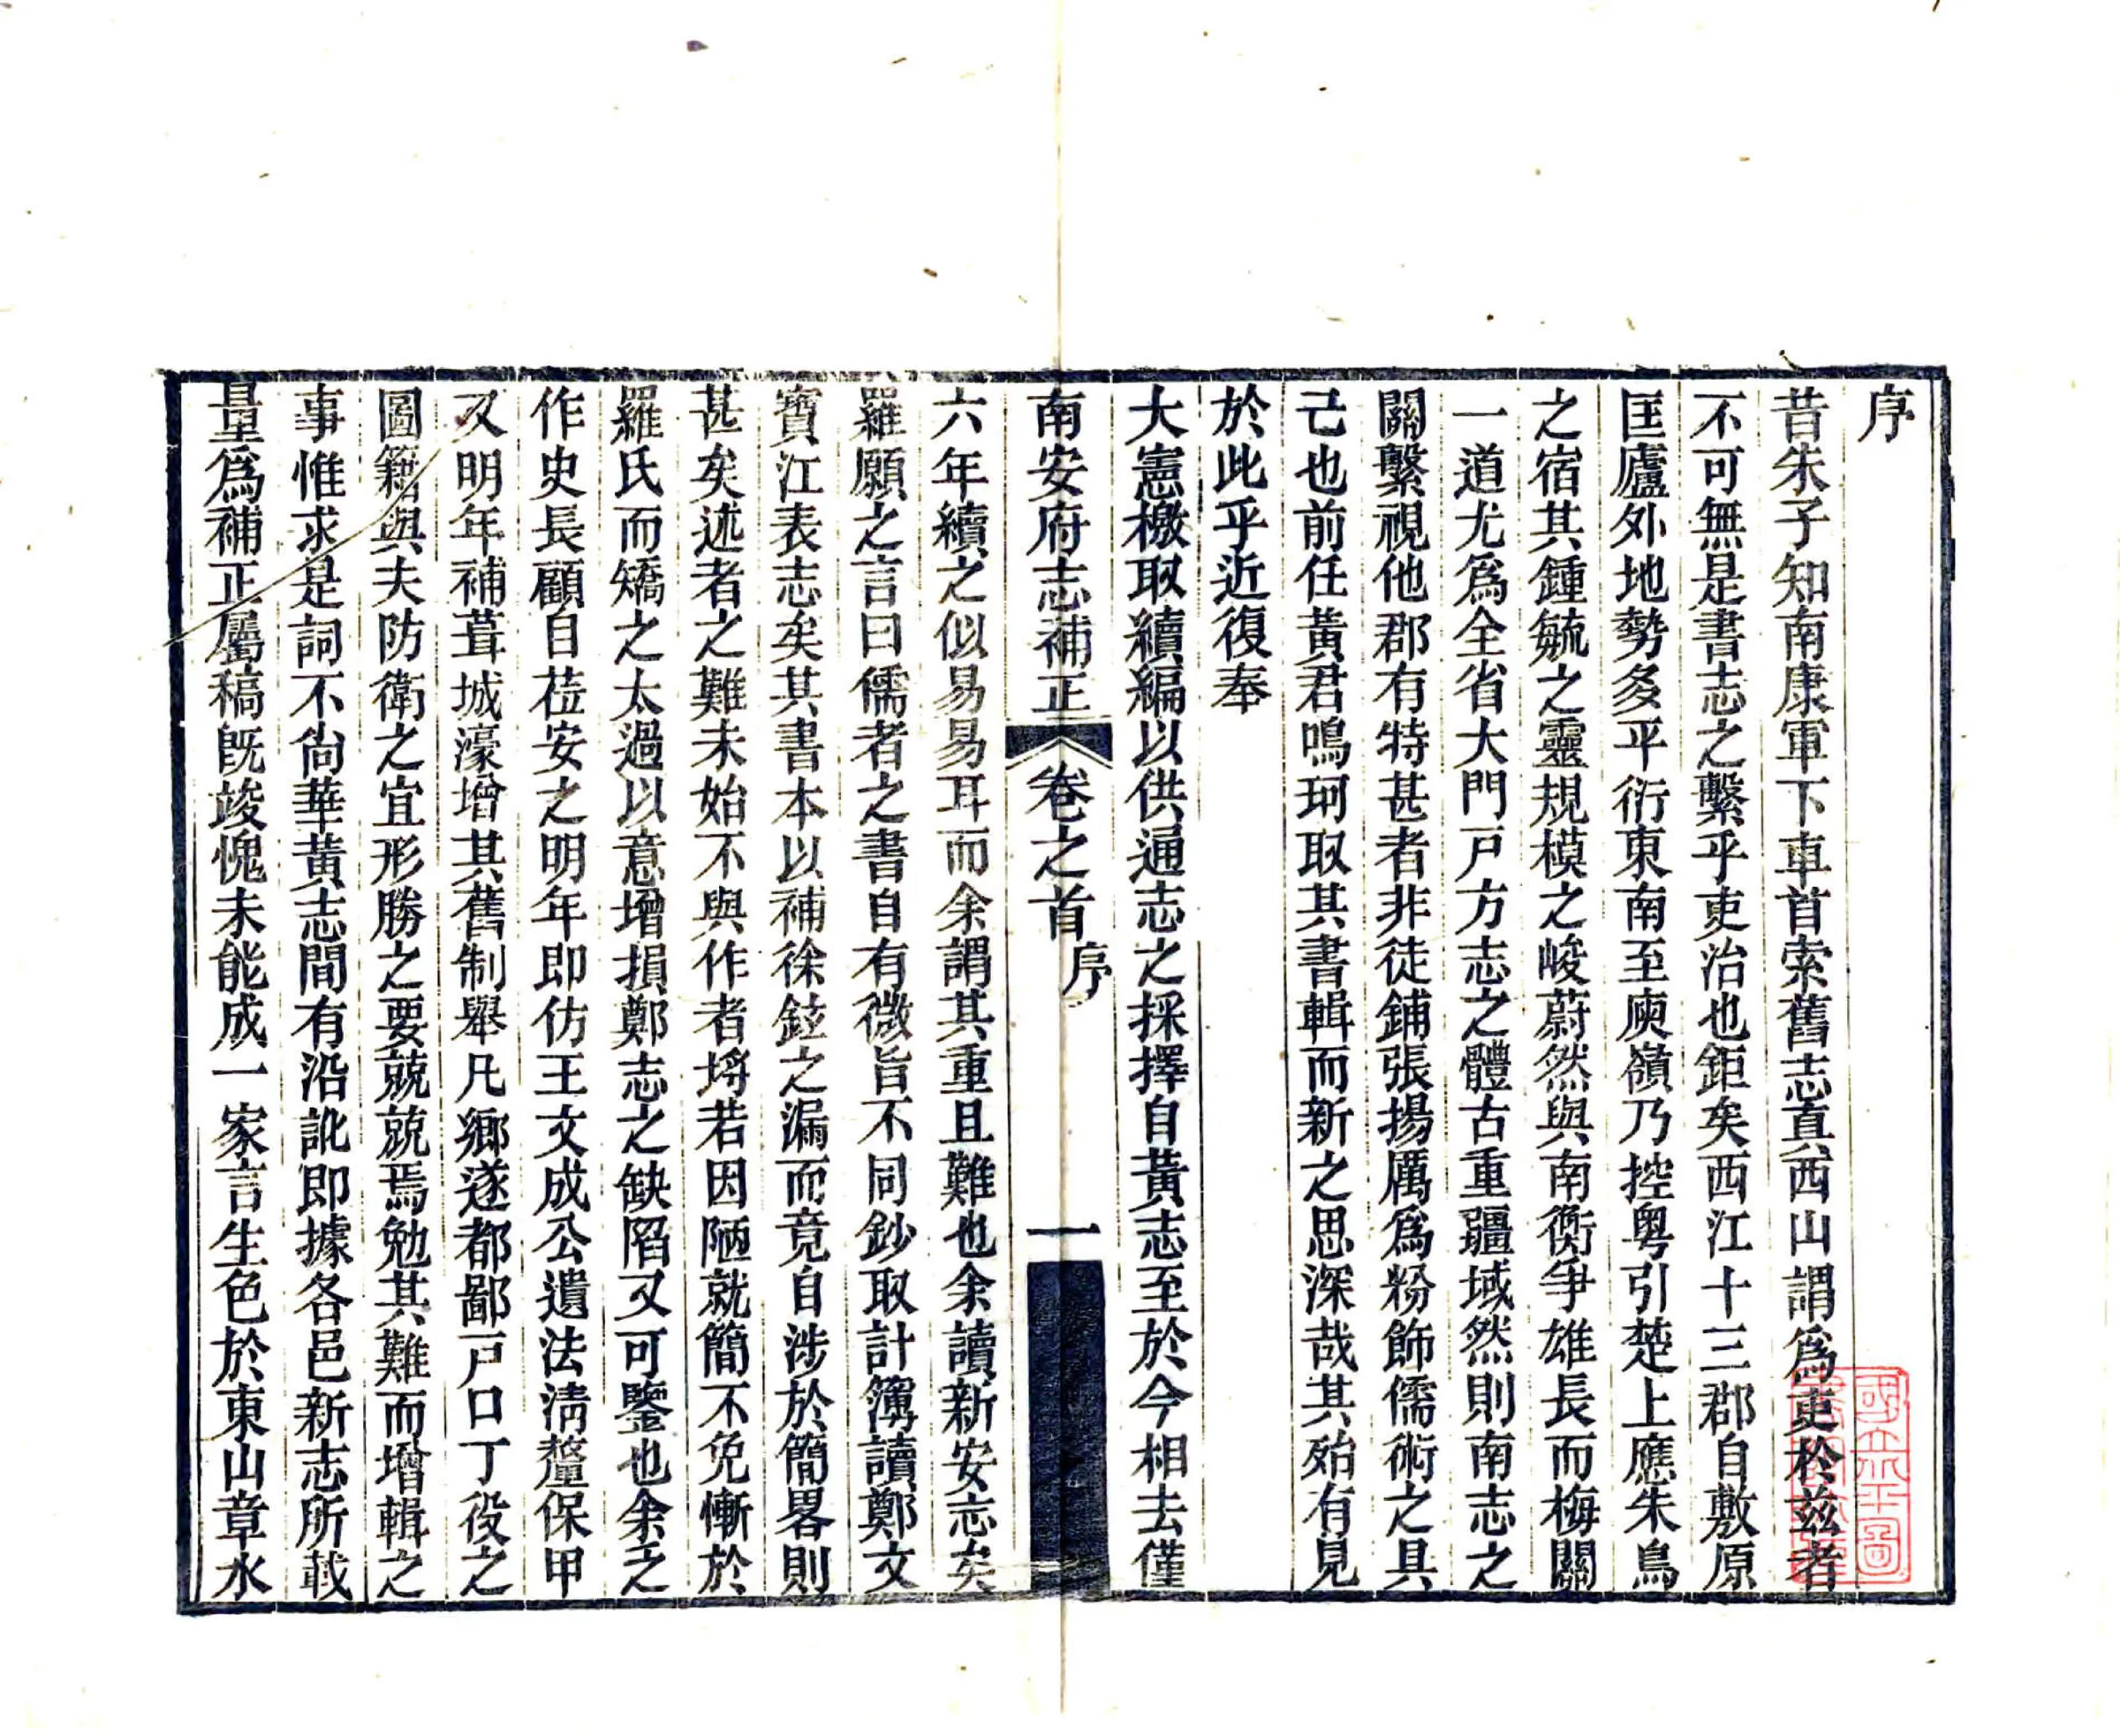 序
昔朱子知南康軍下車首索舊志真西山謂爲吏於茲者
不可無是書志之繫乎吏治也鉅矣西江十三郡自敷原
匡廬外地勢多平衍東南至庾嶺乃控粤引楚上應朱鳥
之宿其鍾毓之靈規模之峻蔚然與南衡爭雄長而梅關
一道尤爲全省大門戸方志之體古重疆域然則南志之
關繫視他郡有特甚者非徒鋪張揚厲爲粉飾儒術之具
己也前任黃君鳴珂取其書輯而新之思深哉其殆有見
於此乎近復奉
大憲檄取續編以供通志之採擇自黃志至於今相去僅
南安府志補正 卷之首 序 一
六年續之似易易耳而余謂其重且難也余讀新安志矣
羅願之言曰儒者之書自有微旨不同鈔取計簿讀鄭文
寶江表志矣其書本以補徐鉉之漏而竟自涉於簡畧則
甚矣述者之難未始不與作者埒若因陋就簡不免慚於
羅氏而矯之太過以意增損鄭志之缺陷又可鑒也余之
作史長顧自莅安之明年即仿王文成公遺法淸釐保甲
又明年補葺城濠增其舊制舉凡鄉遂都鄙戸口丁役之
圖籍與夫防衛之宜形勝之要兢兢焉勉其難而增輯之
事惟求是詞不尙華黃志間有沿訛即據各邑新志所載
量爲補正屬稿旣竣愧未能成一家言生色於東山章水